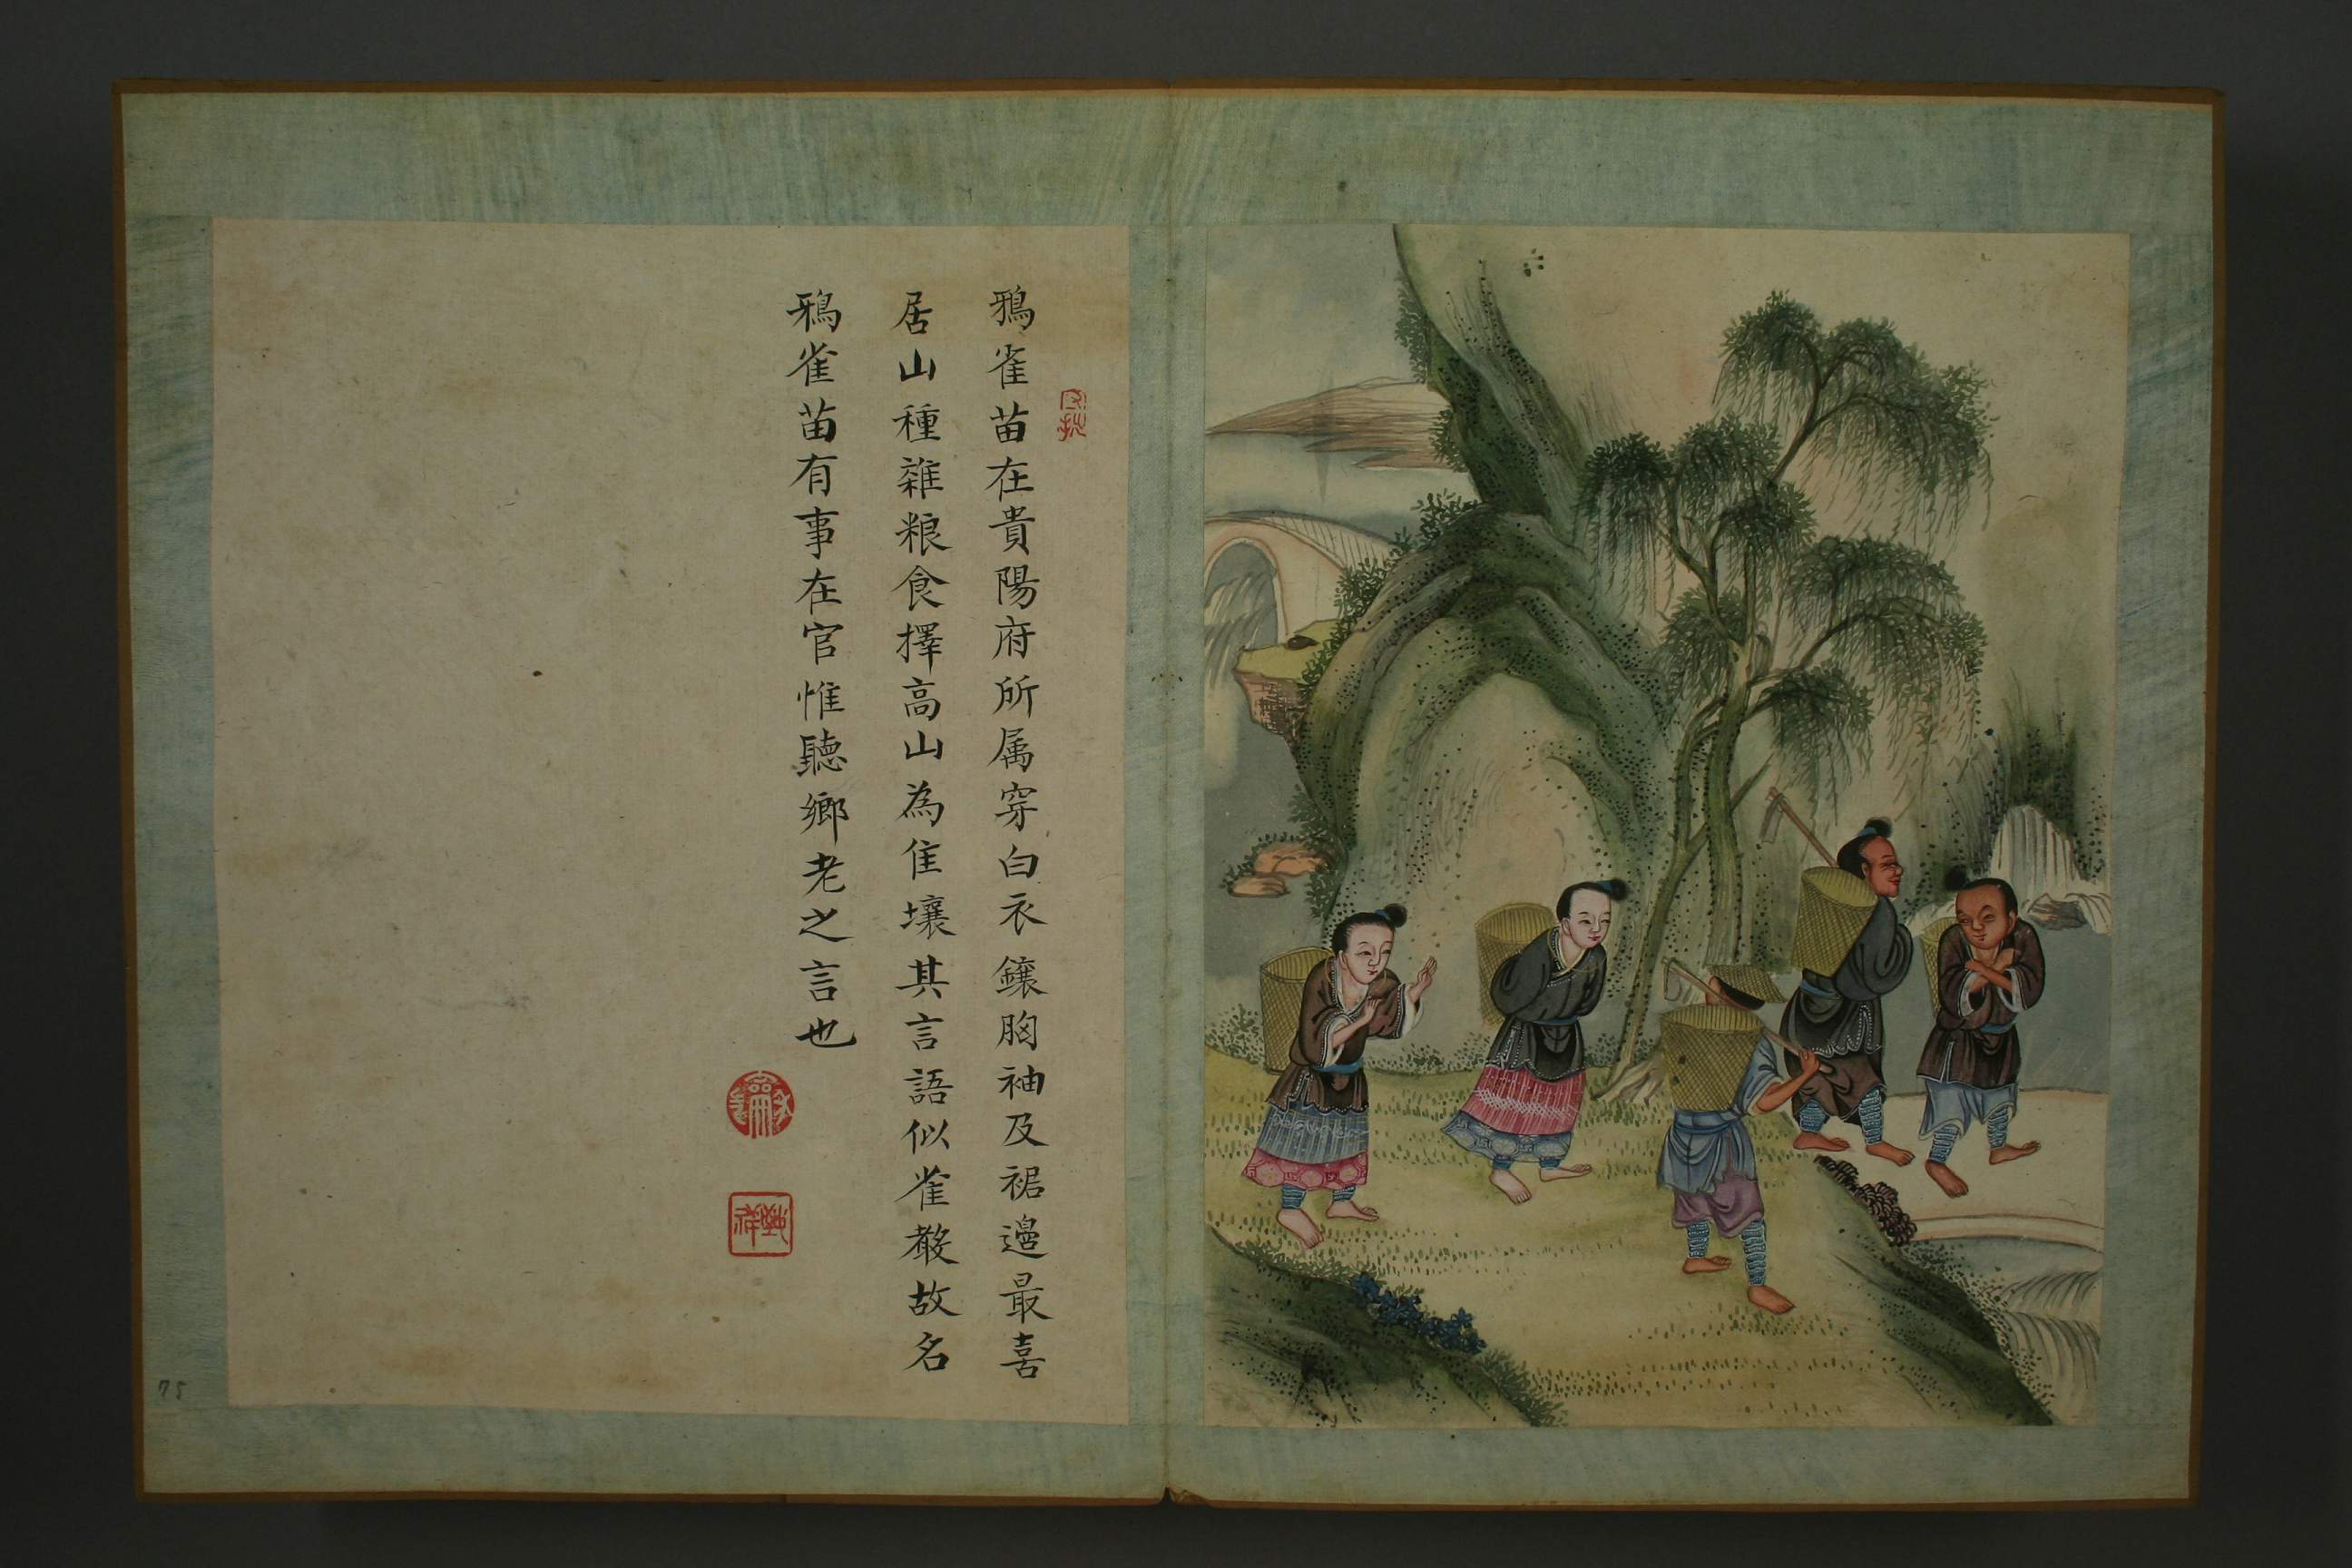 鴉雀苗在貴陽府所属穿白衣鑲胸袖及裾邉最喜
居山種雜粮食擇高山為隹壤其言語似雀㪚故名
鴉雀苗有事在官惟聽鄉老之言也
75